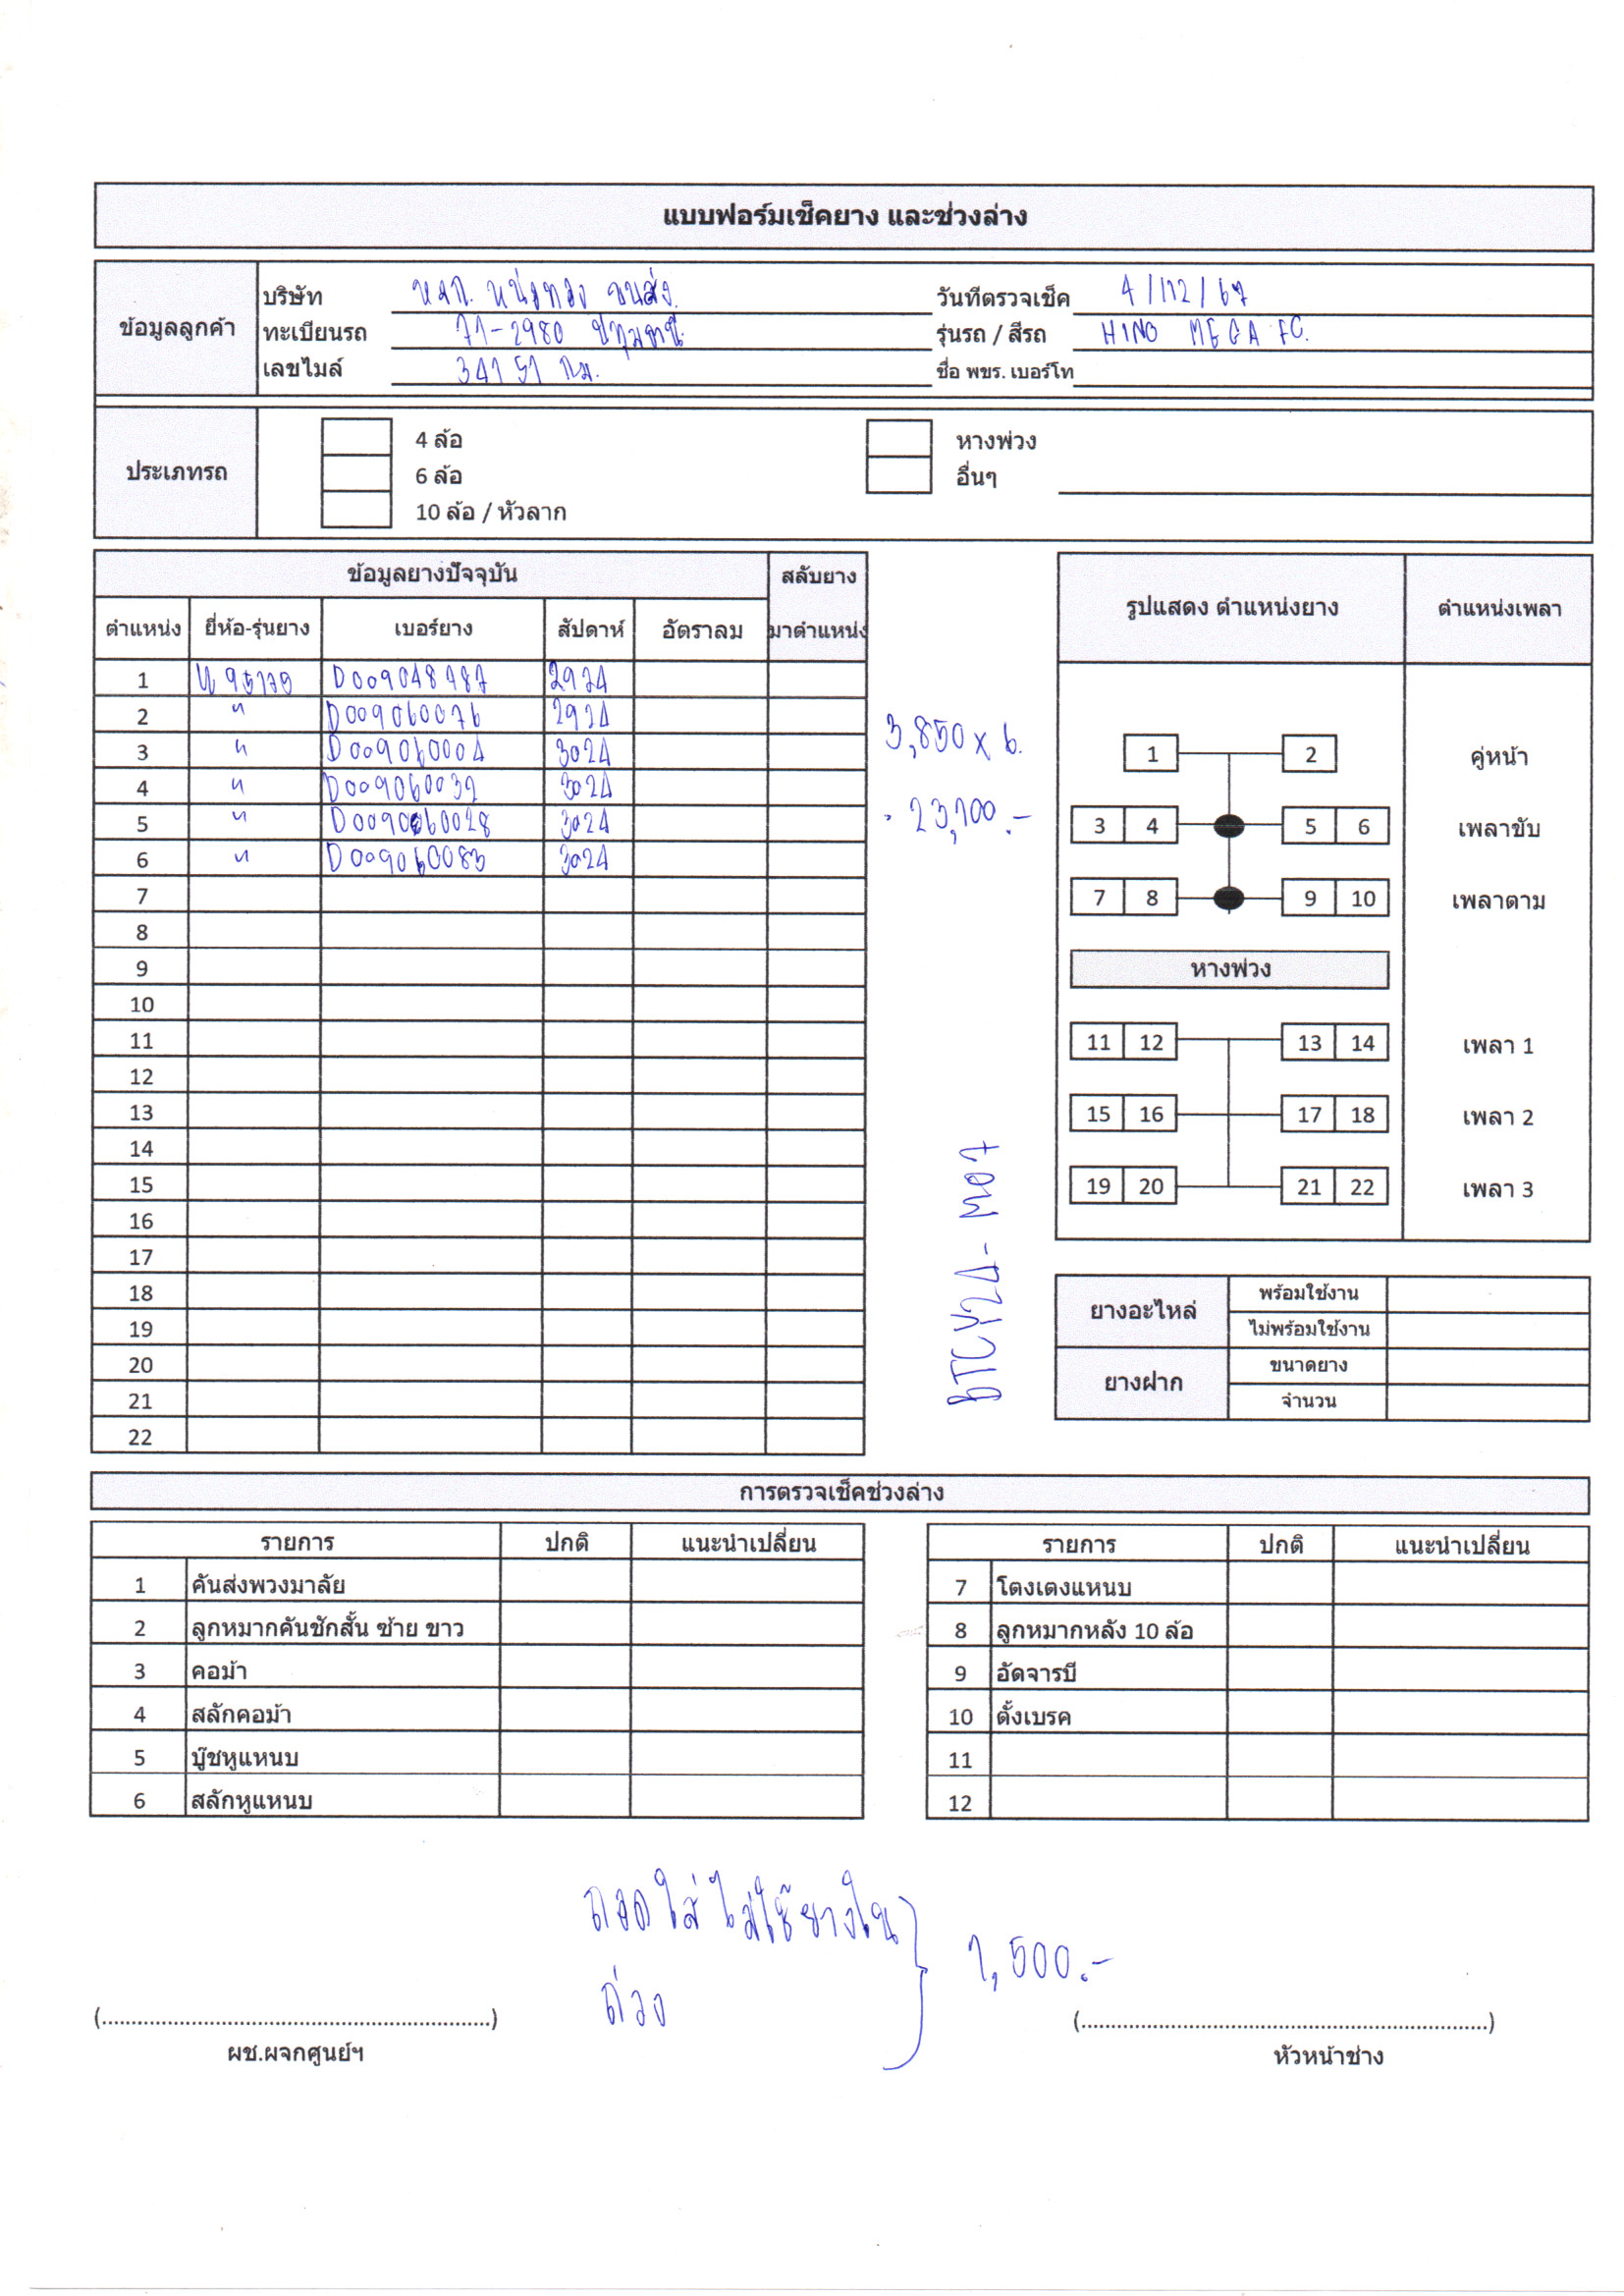 แบบฟอร์มเช็คยาง และช่วงล่าง
ข้อมูลลูกค้า
บริษัท หจก. หน่อทอง ขนส่ง
วันที่ตรวจเช็ค 4/12/67
ทะเบียนรถ 71-2980 ปทุมธานี
รุ่นรถ / สีรถ HINO MEGA FC.
เลขไมล์ 34151 กม.
ชื่อ พขร. เบอร์โท
ประเภทรถ
4 ล้อ
6 ล้อ
10 ล้อ / หัวลาก
หางพ่วง
อื่นๆ
ข้อมูลยางปัจจุบัน สลับยาง
ตำแหน่ง ยี่ห้อ-รุ่นยาง เบอร์ยาง สัปดาห์ อัตราลม มาตำแหน่ง
1 D009048987 2924
2 " D009060076 2924
3 " D009060004 3024
4 " D009060032 3024
5 " D009060028 3024
6 " D009060083 3024
7
8
9
10
11
12
13
14
15
16
17
18
19
20
21
22
3,850 x 6.
23,100.-
BTCY24-M07
รูปแสดง ตำแหน่งยาง ตำแหน่งเพลา
1 2 คู่หน้า
3 4 5 6 เพลาขับ
7 8 9 10 เพลาตาม
หางพ่วง
11 12 13 14 เพลา 1
15 16 17 18 เพลา 2
19 20 21 22 เพลา 3
ยางอะไหล่ พร้อมใช้งาน
ไม่พร้อมใช้งาน
ยางฝาก ขนาดยาง
จำนวน
การตรวจเช็คช่วงล่าง
รายการ ปกติ แนะนำเปลี่ยน
1 คันส่งพวงมาลัย
2 ลูกหมากคันชักสั้น ซ้าย ขาว
3 คอม้า
4 สลักคอม้า
5 บู๊ชหูแหนบ
6 สลักหูแหนบ
รายการ ปกติ แนะนำเปลี่ยน
7 โตงเตงแหนบ
8 ลูกหมากหลัง 10 ล้อ
9 อัดจารบี
10 ตั้งเบรค
11
12
ถอดใส่ไม่ใช้ยางใน
ถ่วง
1,500.-
(..................................................)
ผช.ผจกศูนย์ฯ
(..................................................)
หัวหน้าช่าง